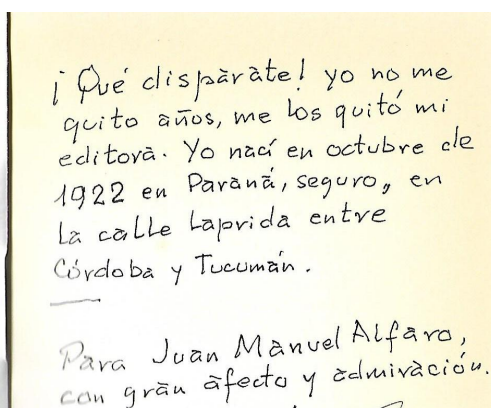 ¡Qué disparate! yo no me
quito años, me los quitó mi
editora. Yo nací en octubre de
1922 en Paraná, seguro, en
la calle Laprida entre
Córdoba y Tucumán.
Para Juan Manuel Alfaro,
con gran afecto y admiración.